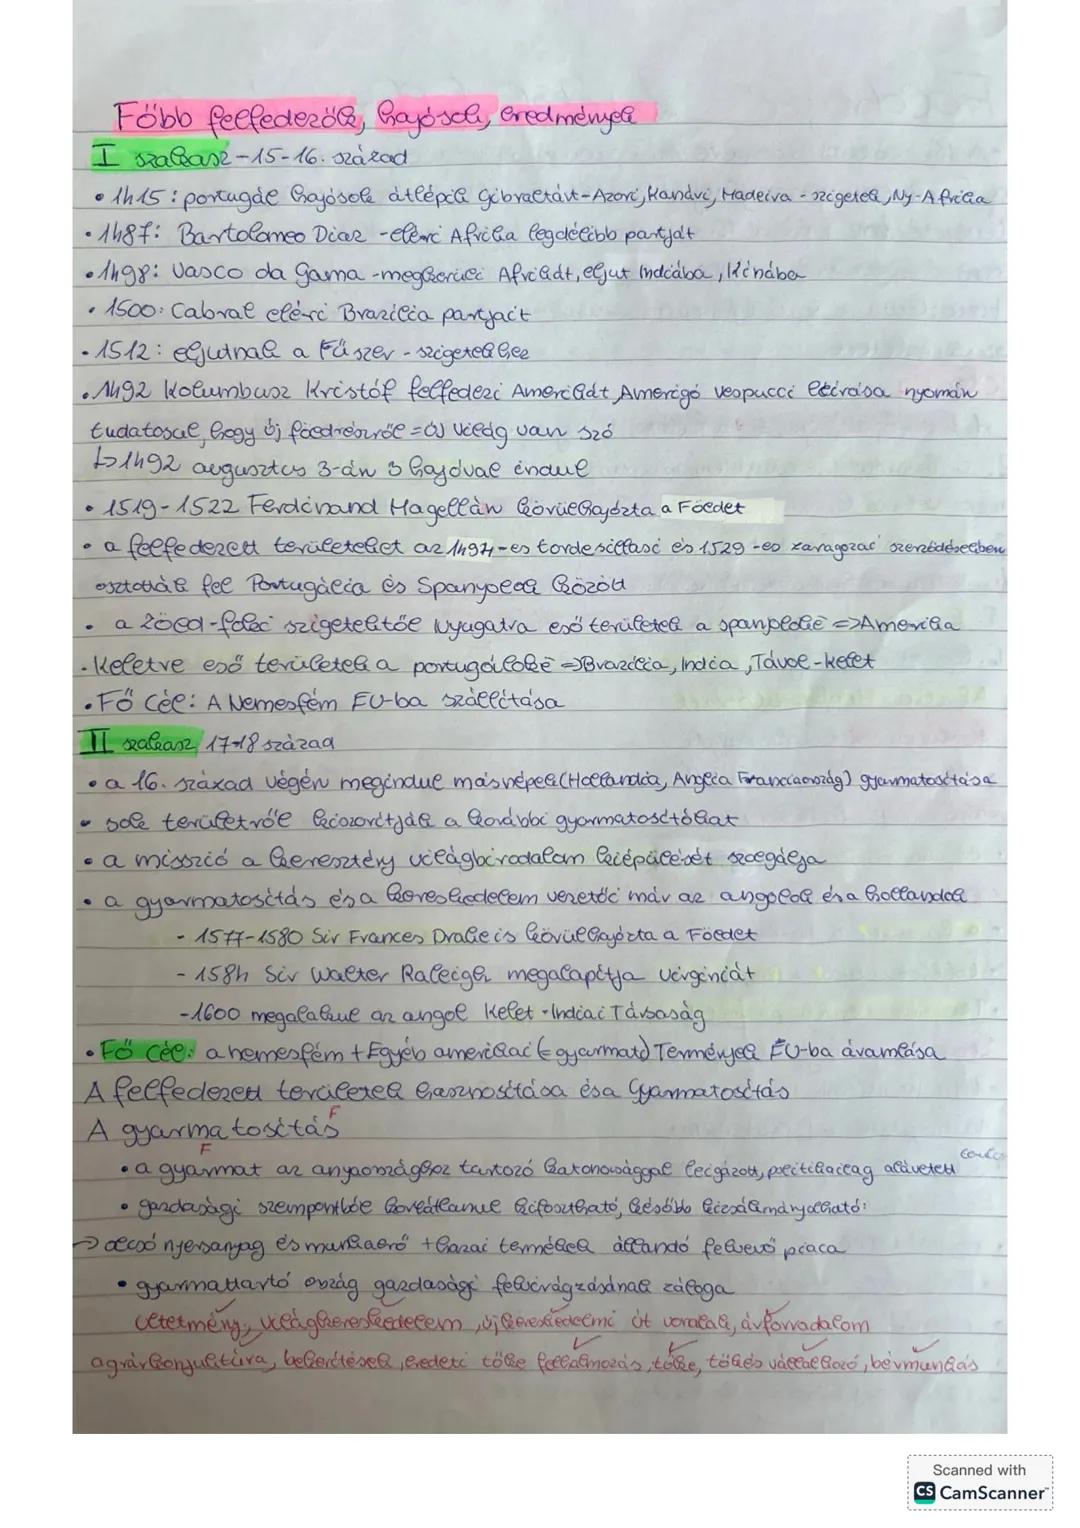 Főbb felfedezők, hajósok, eredmények
I szakasz - 15-16. század
• 1415: portugál hajósok átlépik Gibraltárt - Azori, Kanári, Madeira - szigetek, Ny-Afrika
• 1487: Bartolomeo Diaz - eléri Afrika legdélibb partját
• 1498: Vasco da Gama - megkerüli Afrikát, eljut Indiába, Kínába
• 1500: Cabral eléri Brazília partjait
• 1512: eljutnak a Fűszer - szigetekhez
• 1492 Kolumbusz Kristóf felfedezi Amerikát Amerigó Vespucci leírása nyomán
tudatosul, hogy új földrészről = Új Világ van szó
↳ 1492 augusztus 3-án 3 hajóval indul
• 1519-1522 Ferdinánd Magellán körülhajózta a Földet
• a felfedezett területeket az 1494-es tordesillasi és 1529-es zaragozai szerződésekben
osztották fel Portugália és Spanyolo. között
• a Zöld-foki szigetektől nyugatra eső területek a spanyoloké => Amerika
• Keletre eső területek a portugáloké => Brazília, India, Távol-kelet
• Fő cél: A Nemesfém EU-ba szállítása
II szakasz 17-18 század
• a 16. század végén megindul más népek (Hollandia, Anglia Franciaország) gyarmatosítása
• sok területről kiszorítják a korábbi gyarmatosítókat
• a misszió a keresztény világbirodalom kiépülését szolgálja
• a gyarmatosítás és a kereskedelem vezetői már az angolok és a hollandok
- 1577-1580 Sir Frances Drake is körülhajózta a Földet
- 1584 Sir Walter Raleigh megalapítja Virginiát
- 1600 megalakul az angol Kelet-Indiai Társaság
• Fő cél: a nemesfém + Egyéb amerikai (= gyarmati) Termények EU-ba áramlása
A felfedezett területek hasznosítása és a Gyarmatosítás
A gyarmatosítás F
F
• a gyarmat az anyaországhoz tartozó katonasággal leigázott, politikailag alávetett
• gazdasági szempontból korlátlanul kifosztható, később kizsákmányolható:
→ olcsó nyersanyag és munkaerő + hazai termékek állandó felvevő piaca
• gyarmattartó ország gazdasági felvirágzásának záloga
ültetmény, világkereskedelem, új kereskedelmi út vonalak, árforradalom
agrárkonjuktúra, bekerítések, eredeti tőke felhalmozás, tőke, tőkés vállalkozó, bérmunkás
Scanned with
CS CamScanner